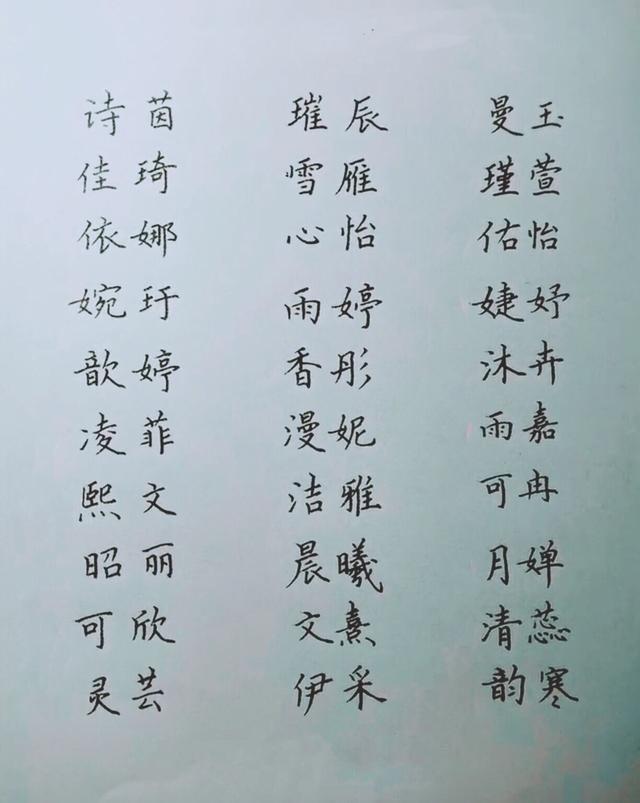 诗茵 璀辰 曼玉
佳琦 雪雁 瑾萱
依娜 心怡 佑怡
婉玗 雨婷 婕妤
歆婷 香彤 沐卉
凌菲 漫妮 雨嘉
熙文 洁雅 可冉
昭丽 晨曦 月婵
可欣 文熹 清蕊
灵芸 伊采 韵寒